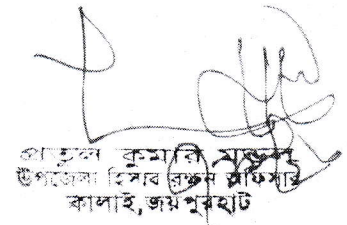 প্রতুল কুমার মন্ডল
উপজেলা হিসাব রক্ষন অফিসার
কালাই, জয়পুরহাট